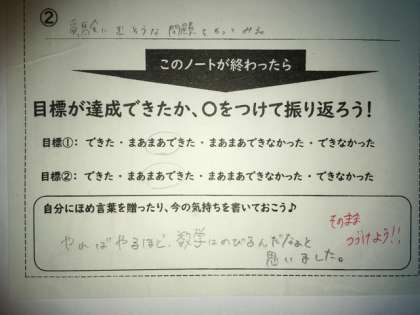 ②
問題をもってみる
このノートが終わったら
目標が達成できたか、〇をつけて振り返ろう！
目標①：できた・まあまあできた・まあまあできなかった・できなかった
目標②：できた・まあまあできた・まあまあできなかった・できなかった
自分にほめ言葉を贈ったり、今の気持ちを書いておこう♪
そのまま
つづけよう!!
やればやるほど、数学はのびるんだなぁと
思いました。